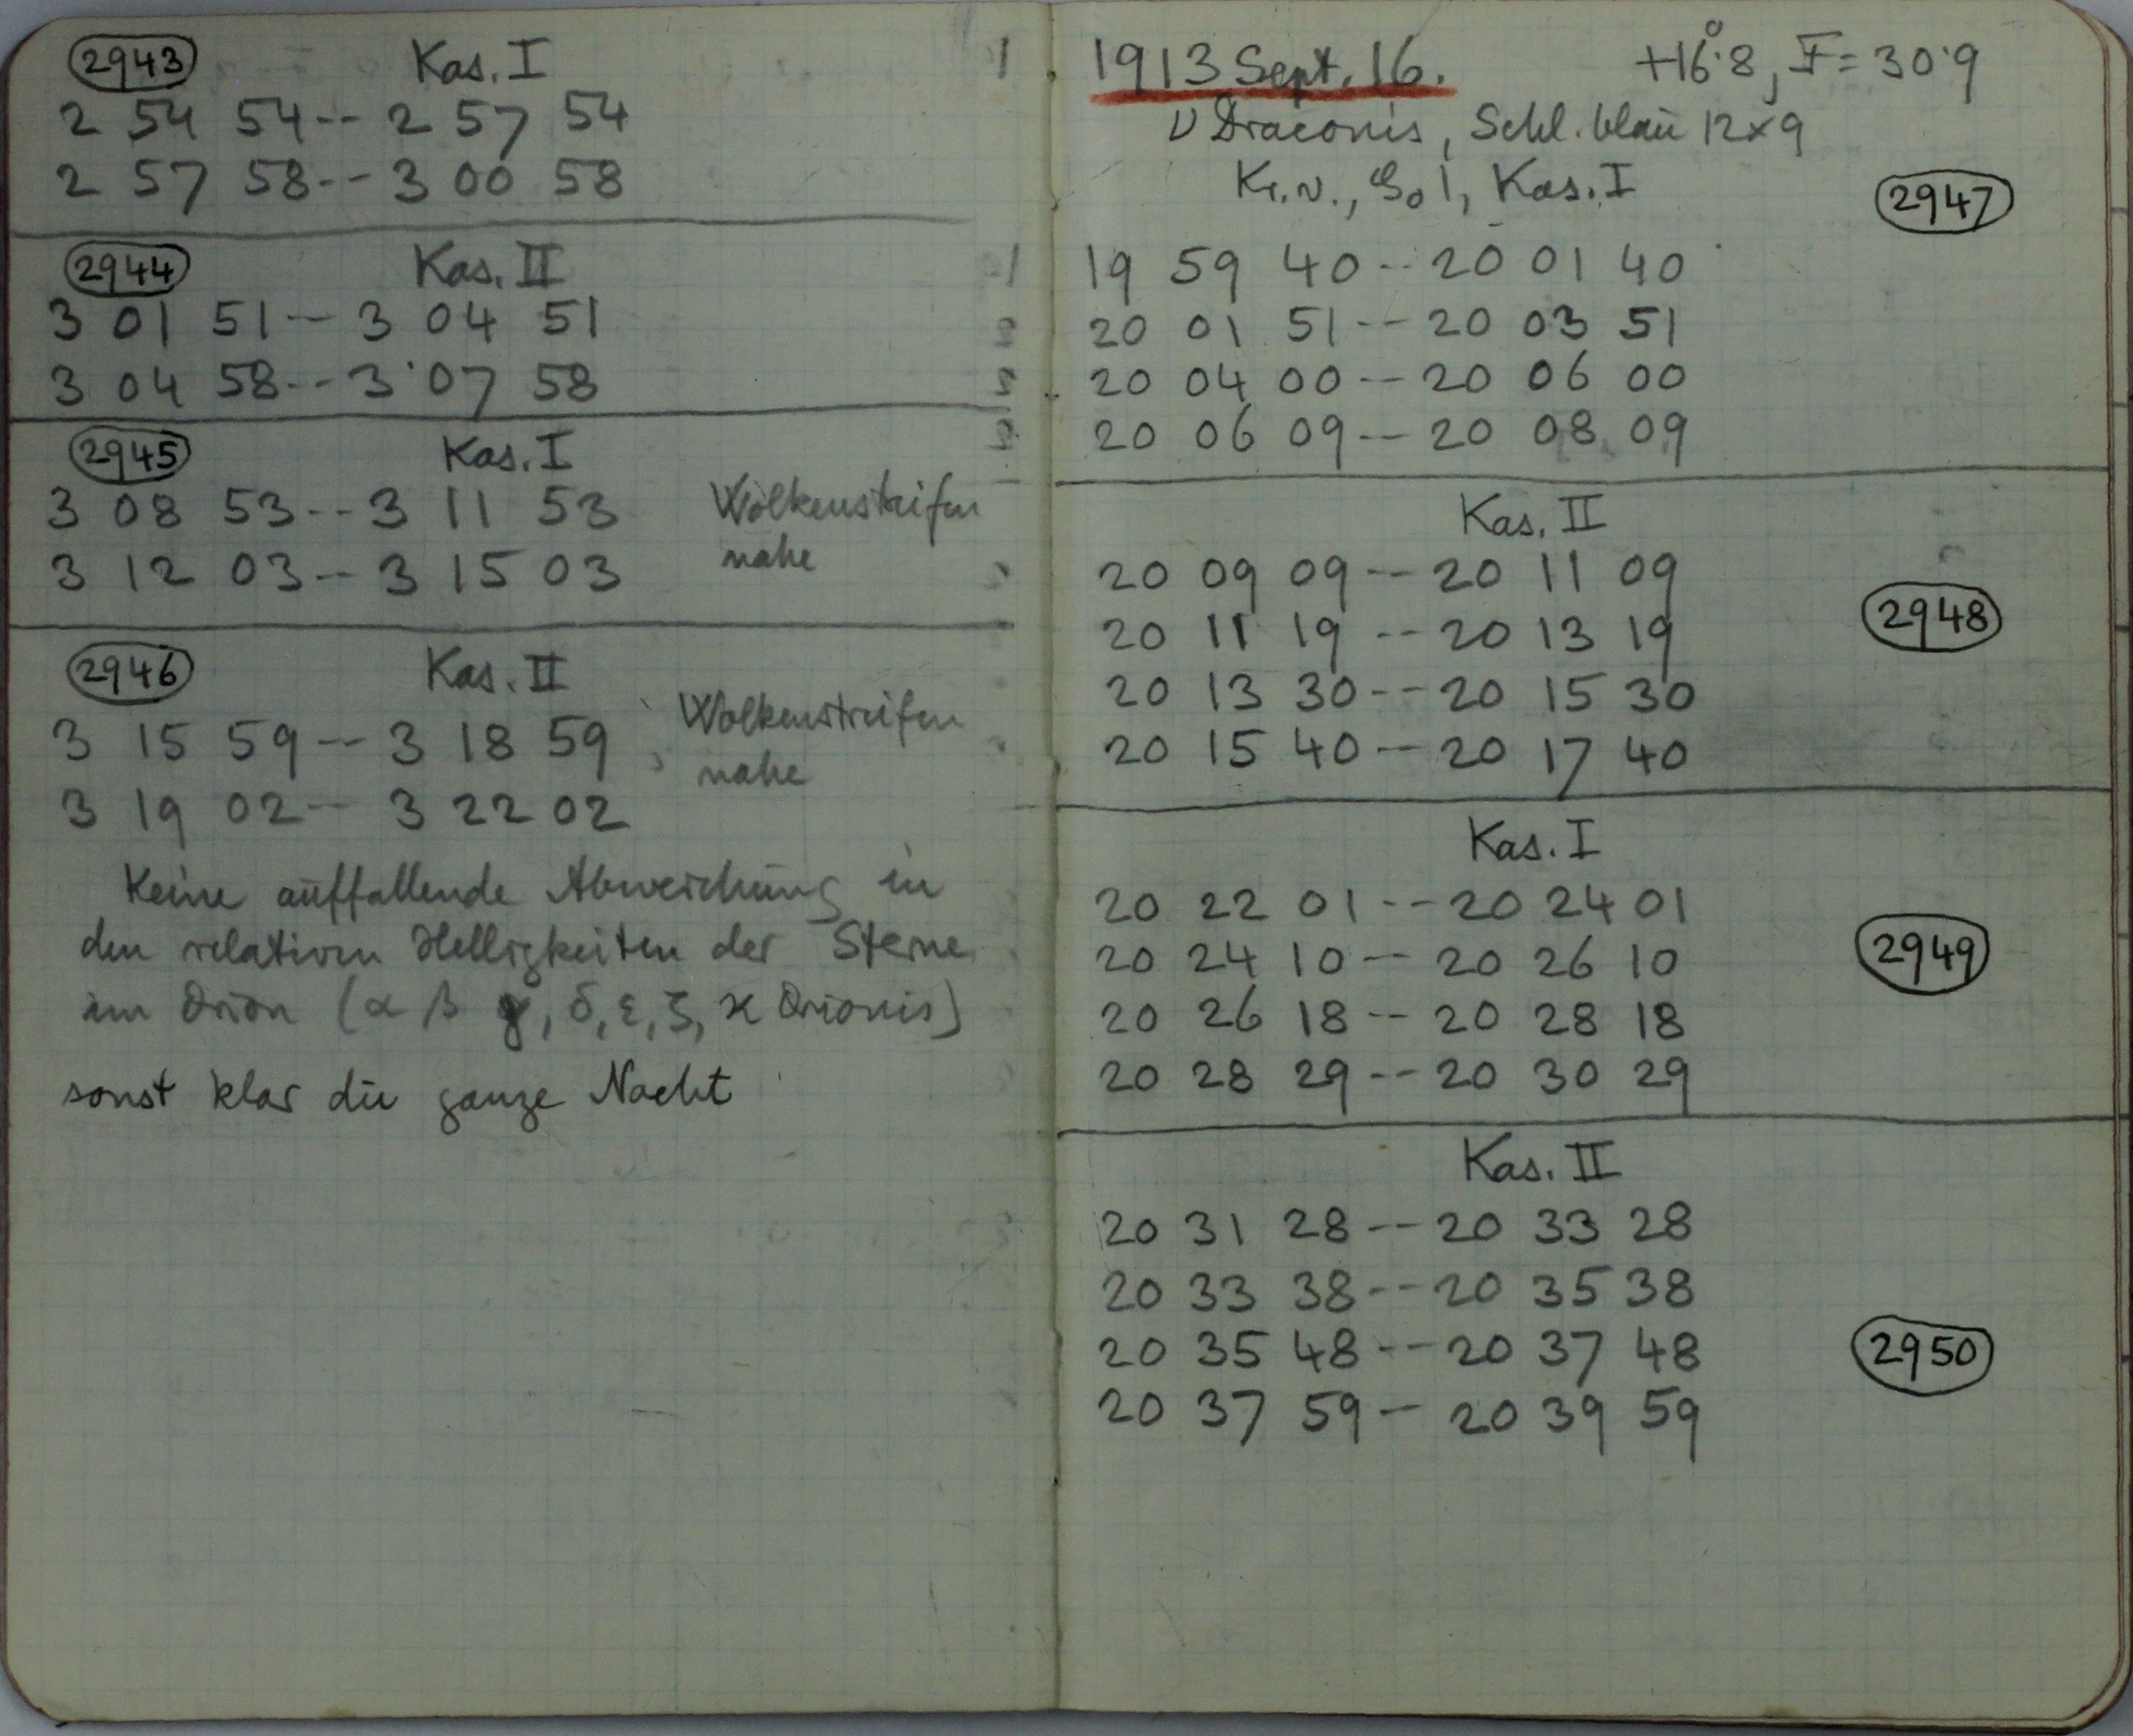 2943 Kas. I
2 54 54--2 57 54
2 57 58--3 00 58
2944 Kas. II
3 01 51--3 04 51
3 04 58--3 07 58
2945 Kas. I
3 08 53--3 11 53 Wolkenstreifen
3 12 03--3 15 03 nahe
2946 Kas. II
3 15 59--3 18 59 Wolkenstreifen
nahe
3 19 02--3 22 02
Keine auffallende Abweichung in
den relativen Helligkeiten der Sterne
im Orion (α β γ, δ, ε, ζ, κ Orionis)
sonst klar die ganze Nacht
1913 Sept. 16. +16°.8, F=30.9
ν Draconis, Schl. blau 12×9
Kr. v., 1, Kas. I
2947
19 59 40--20 01 40
20 01 51--20 03 51
20 04 00--20 06 00
20 06 09--20 08 09
Kas. II
20 09 09--20 11 09
2948
20 11 19--20 13 19
20 13 30--20 15 30
20 15 40--20 17 40
Kas. I
20 22 01--20 24 01
20 24 10--20 26 10 2949
20 26 18--20 28 18
20 28 29--20 30 29
Kas. II
20 31 28--20 33 28
20 33 38--20 35 38
20 35 48--20 37 48 2950
20 37 59--20 39 59